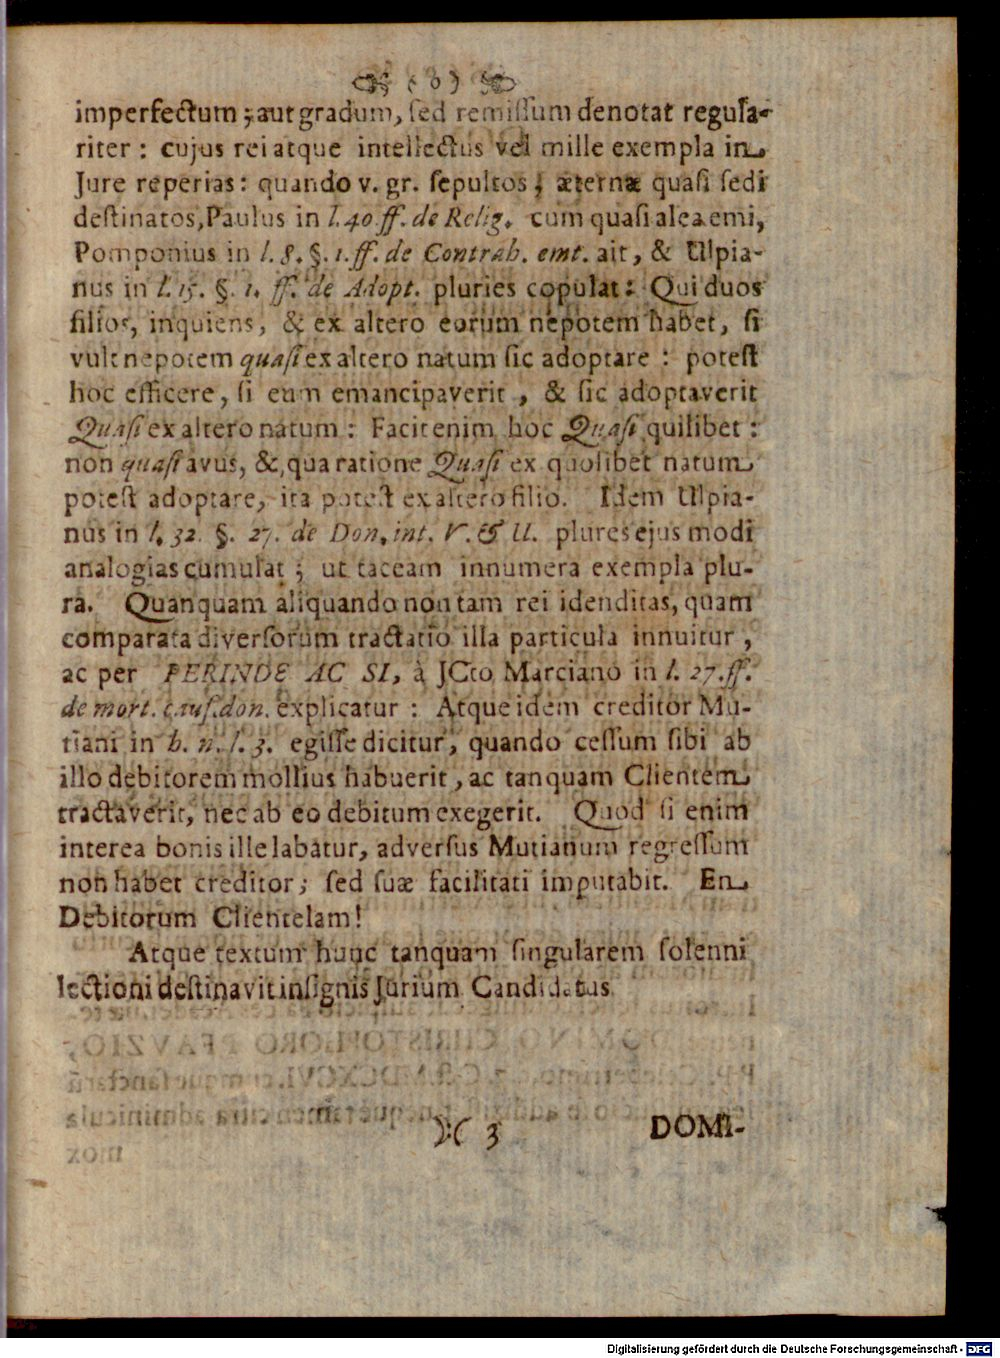 ( o )
imperfectum ; aut gradum, ſed remiſſum denotat regula-
riter : cujus rei atque intellectus vel mille exempla in
Jure reperias : quando v. gr. ſepultos, æternæ quaſi ſedi
deſtinatos, Paulus in l. 40. ff. de Relig. cum quaſi alea emi,
Pomponius in l. 8. §. 1. ff. de Contrah. emt. ait, & Ulpia-
nus in l. 15. §. 1. ff. de Adopt. pluries copulat : Qui duos
filios, inquiens, & ex altero eorum nepotem habet, ſi
vult nepotem quaſi ex altero natum ſic adoptare : poteſt
hoc efficere, ſi eum emancipaverit, & ſic adoptaverit
Quaſi ex altero natum : Facit enim hoc Quaſi quilibet :
non quaſi avus, &, qua ratione Quaſi ex quolibet natum
poteſt adoptare, ita poteſt ex altero filio. Idem Ulpia-
nus in l. 32. §. 27. de Don. int. V. & U. plures ejus modi
analogias cumulat ; ut taceam innumera exempla plu-
ra. Quanquam aliquando non tam rei idenditas, quam
comparata diverſorum tractatio illa particula innuitur,
ac per PERINDE AC SI, à JCto Marciano in l. 27. ff.
de mort. cauſ. don. explicatur : Atque idem creditor Mu-
tiani in h. n. l. 3. egiſſe dicitur, quando ceſſum ſibi ab
illo debitorem mollius habuerit, ac tanquam Clientem
tractaverit, nec ab eo debitum exegerit. Quod ſi enim
interea bonis ille labatur, adverſus Mutianum regreſſum
non habet creditor ; ſed ſuæ facilitati imputabit. En
Debitorum Clientelam !
Atque textum hunc tanquam ſingularem ſolenni
lectioni deſtinavit inſignis Jurium Candidatus
):( 3 DOMI-
Digitalisierung gefördert durch die Deutsche Forschungsgemeinschaft - DFG